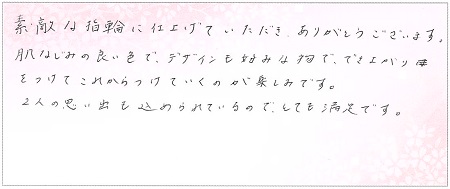 素敵な指輪に仕上げていただき、ありがとうございます。
肌なじみの良い色で、デザインも好みな物で、でき上がり
をつけてこれからつけていくのが楽しみです。
2人の思い出も込められているので、とても満足です。